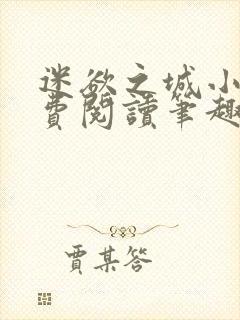 迷欲之城小
費閱讀筆趣
賈某答